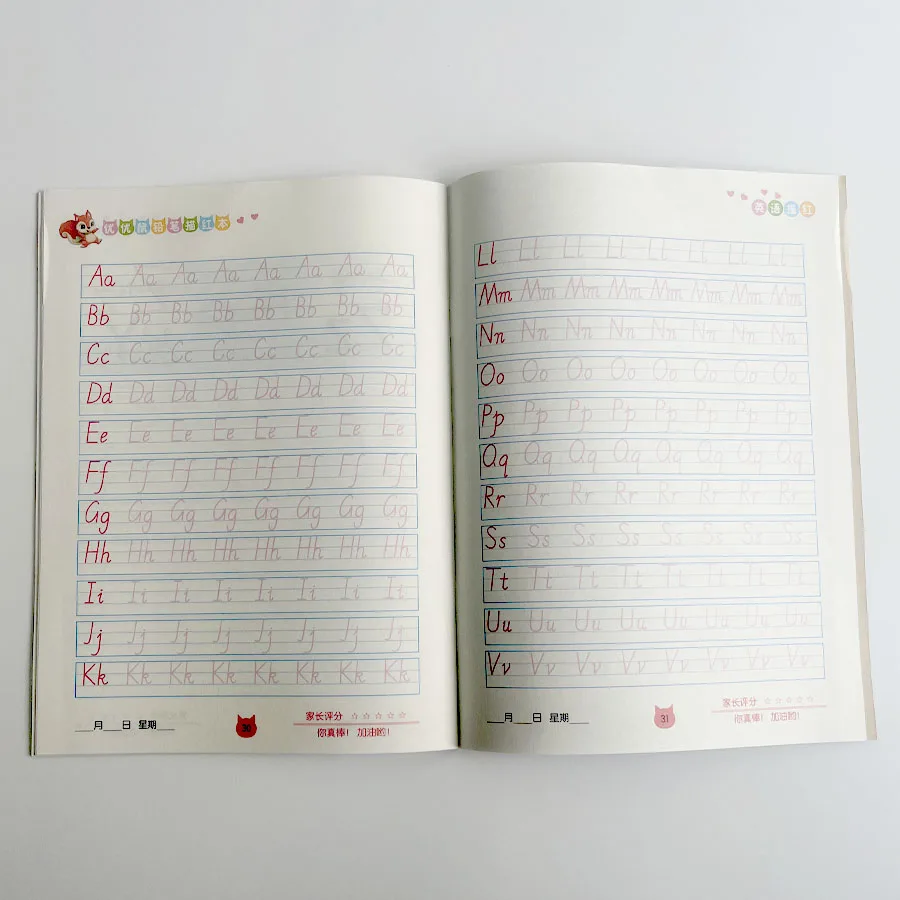 优优鼠铅笔描红本
Aa Aa Aa Aa Aa Aa Aa Aa
Bb Bb Bb Bb Bb Bb Bb Bb
Cc Cc Cc Cc Cc Cc Cc Cc
Dd Dd Dd Dd Dd Dd Dd Dd
Ee Ee Ee Ee Ee Ee Ee Ee
Ff Ff Ff Ff Ff Ff Ff Ff
Gg Gg Gg Gg Gg Gg Gg Gg
Hh Hh Hh Hh Hh Hh Hh Hh
Ii Ii Ii Ii Ii Ii Ii Ii
Jj Jj Jj Jj Jj Jj Jj Jj
Kk Kk Kk Kk Kk Kk Kk Kk
___月___日 星期___
30
家长评分 ☆☆☆☆☆
你真棒! 加油哟!
英语描红
Ll Ll Ll Ll Ll Ll Ll Ll
Mm Mm Mm Mm Mm Mm Mm Mm
Nn Nn Nn Nn Nn Nn Nn Nn
Oo Oo Oo Oo Oo Oo Oo Oo
Pp Pp Pp Pp Pp Pp Pp Pp
Qq Qq Qq Qq Qq Qq Qq Qq
Rr Rr Rr Rr Rr Rr Rr Rr
Ss Ss Ss Ss Ss Ss Ss Ss
Tt Tt Tt Tt Tt Tt Tt Tt
Uu Uu Uu Uu Uu Uu Uu Uu
Vv Vv Vv Vv Vv Vv Vv Vv
___月___日 星期___
31
家长评分 ☆☆☆☆☆
你真棒! 加油哟!